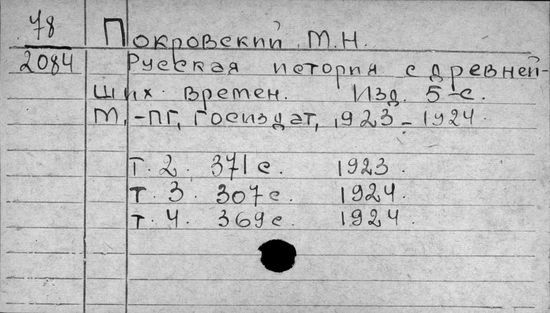 78 Покровский М.Н.
2084 Русская история с древней-
ших времен. Изд. 5-е.
М,-ПГ, Госиздат, 1923-1924.
Т. 2. 371 с. 1923.
т. 3. 307 с. 1924.
т. 4. 369 с. 1924.